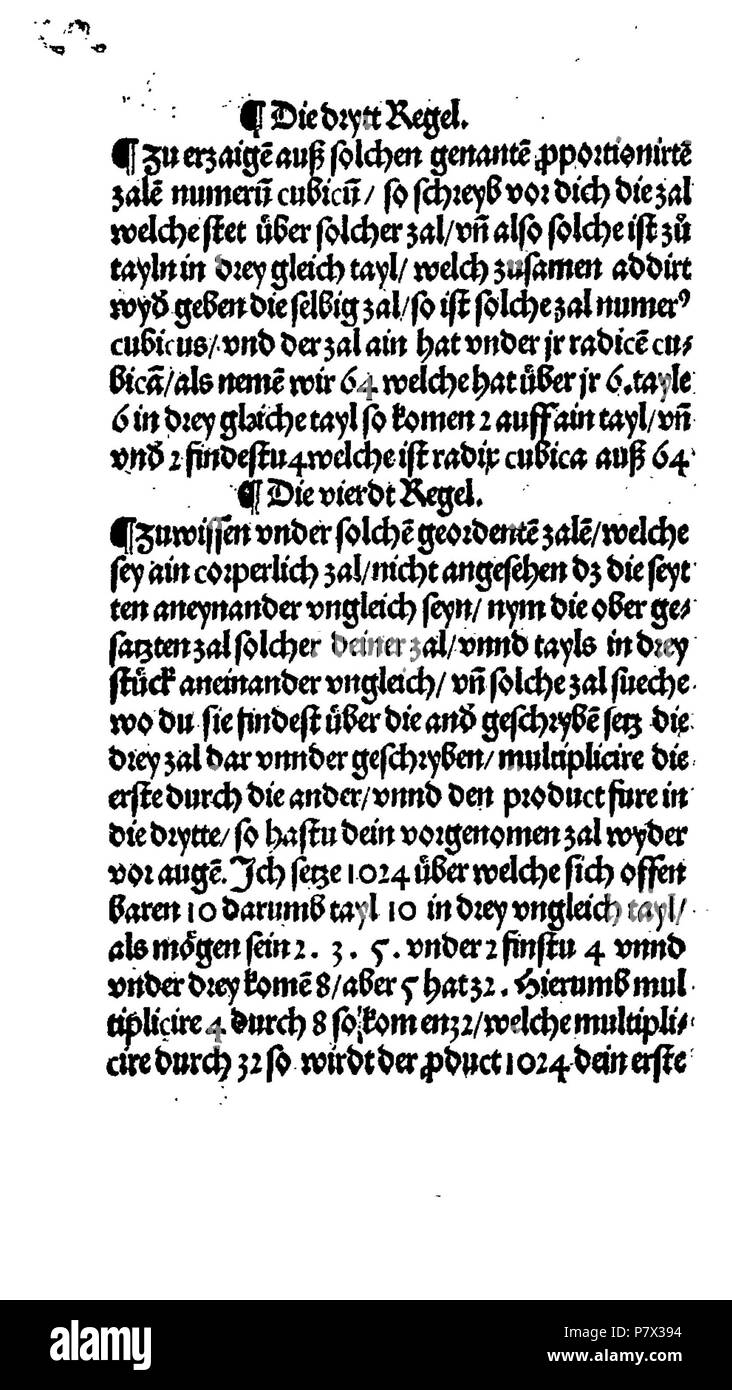 ¶ Die drytt Regel.
¶ Zu erzaigē auß solchen genantē ꝓportionirtē
zalē numerū cubicū/ so schreyb vor dich die zal
welche stet über solcher zal/ vñ also solche ist zů
tayln in drey gleich tayl/ welch zusamen addirt
wyd̕ geben die selbig zal/ so ist solche zal numerꝰ
cubicus/ vnd der zal ain hat vnder jr radicē cu⸗
bicā/ als nemē wir 64 welche hat über jr 6. tayle
6 in drey gleiche tayl so komen 2 auff ain tayl/ vñ
vnd̕ 2 findestu 4 welche ist radix cubica auß 64
¶ Die vierdt Regel.
¶ Zuwissen vnder solchē geordentē zalē/ welche
sey ain corperlich zal/ nicht angesehen dz die seyt
ten aneynander vngleich seyn/ nym die ober ge⸗
satzten zal solcher deiner zal/ vnnd tayls in drey
stück aneinander vngleich/ vñ solche zal sueche
wo du sie findest über die and̕ geschrybē setz die
drey zal dar vnnder geschryben/ multiplicire die
erste durch die ander/ vnnd den product fure in
die drytte/ so hastu dein vorgenomen zal wyder
vor augē. Ich setze 1024 über welche sich offen
baren 10 darumb tayl 10 in drey vngleich tayl/
als mögen sein 2. 3. 5. vnder 2 finstu 4 vnnd
vnder drey komē 8/ aber 5 hat 32. Hierumb mul
tiplicire 4 durch 8 so komen 32/ welche multipli⸗
cire durch 32 so wirdt der ꝓduct 1024 dein erste
alamy
alamy
Image ID: P7X394
www.alamy.com